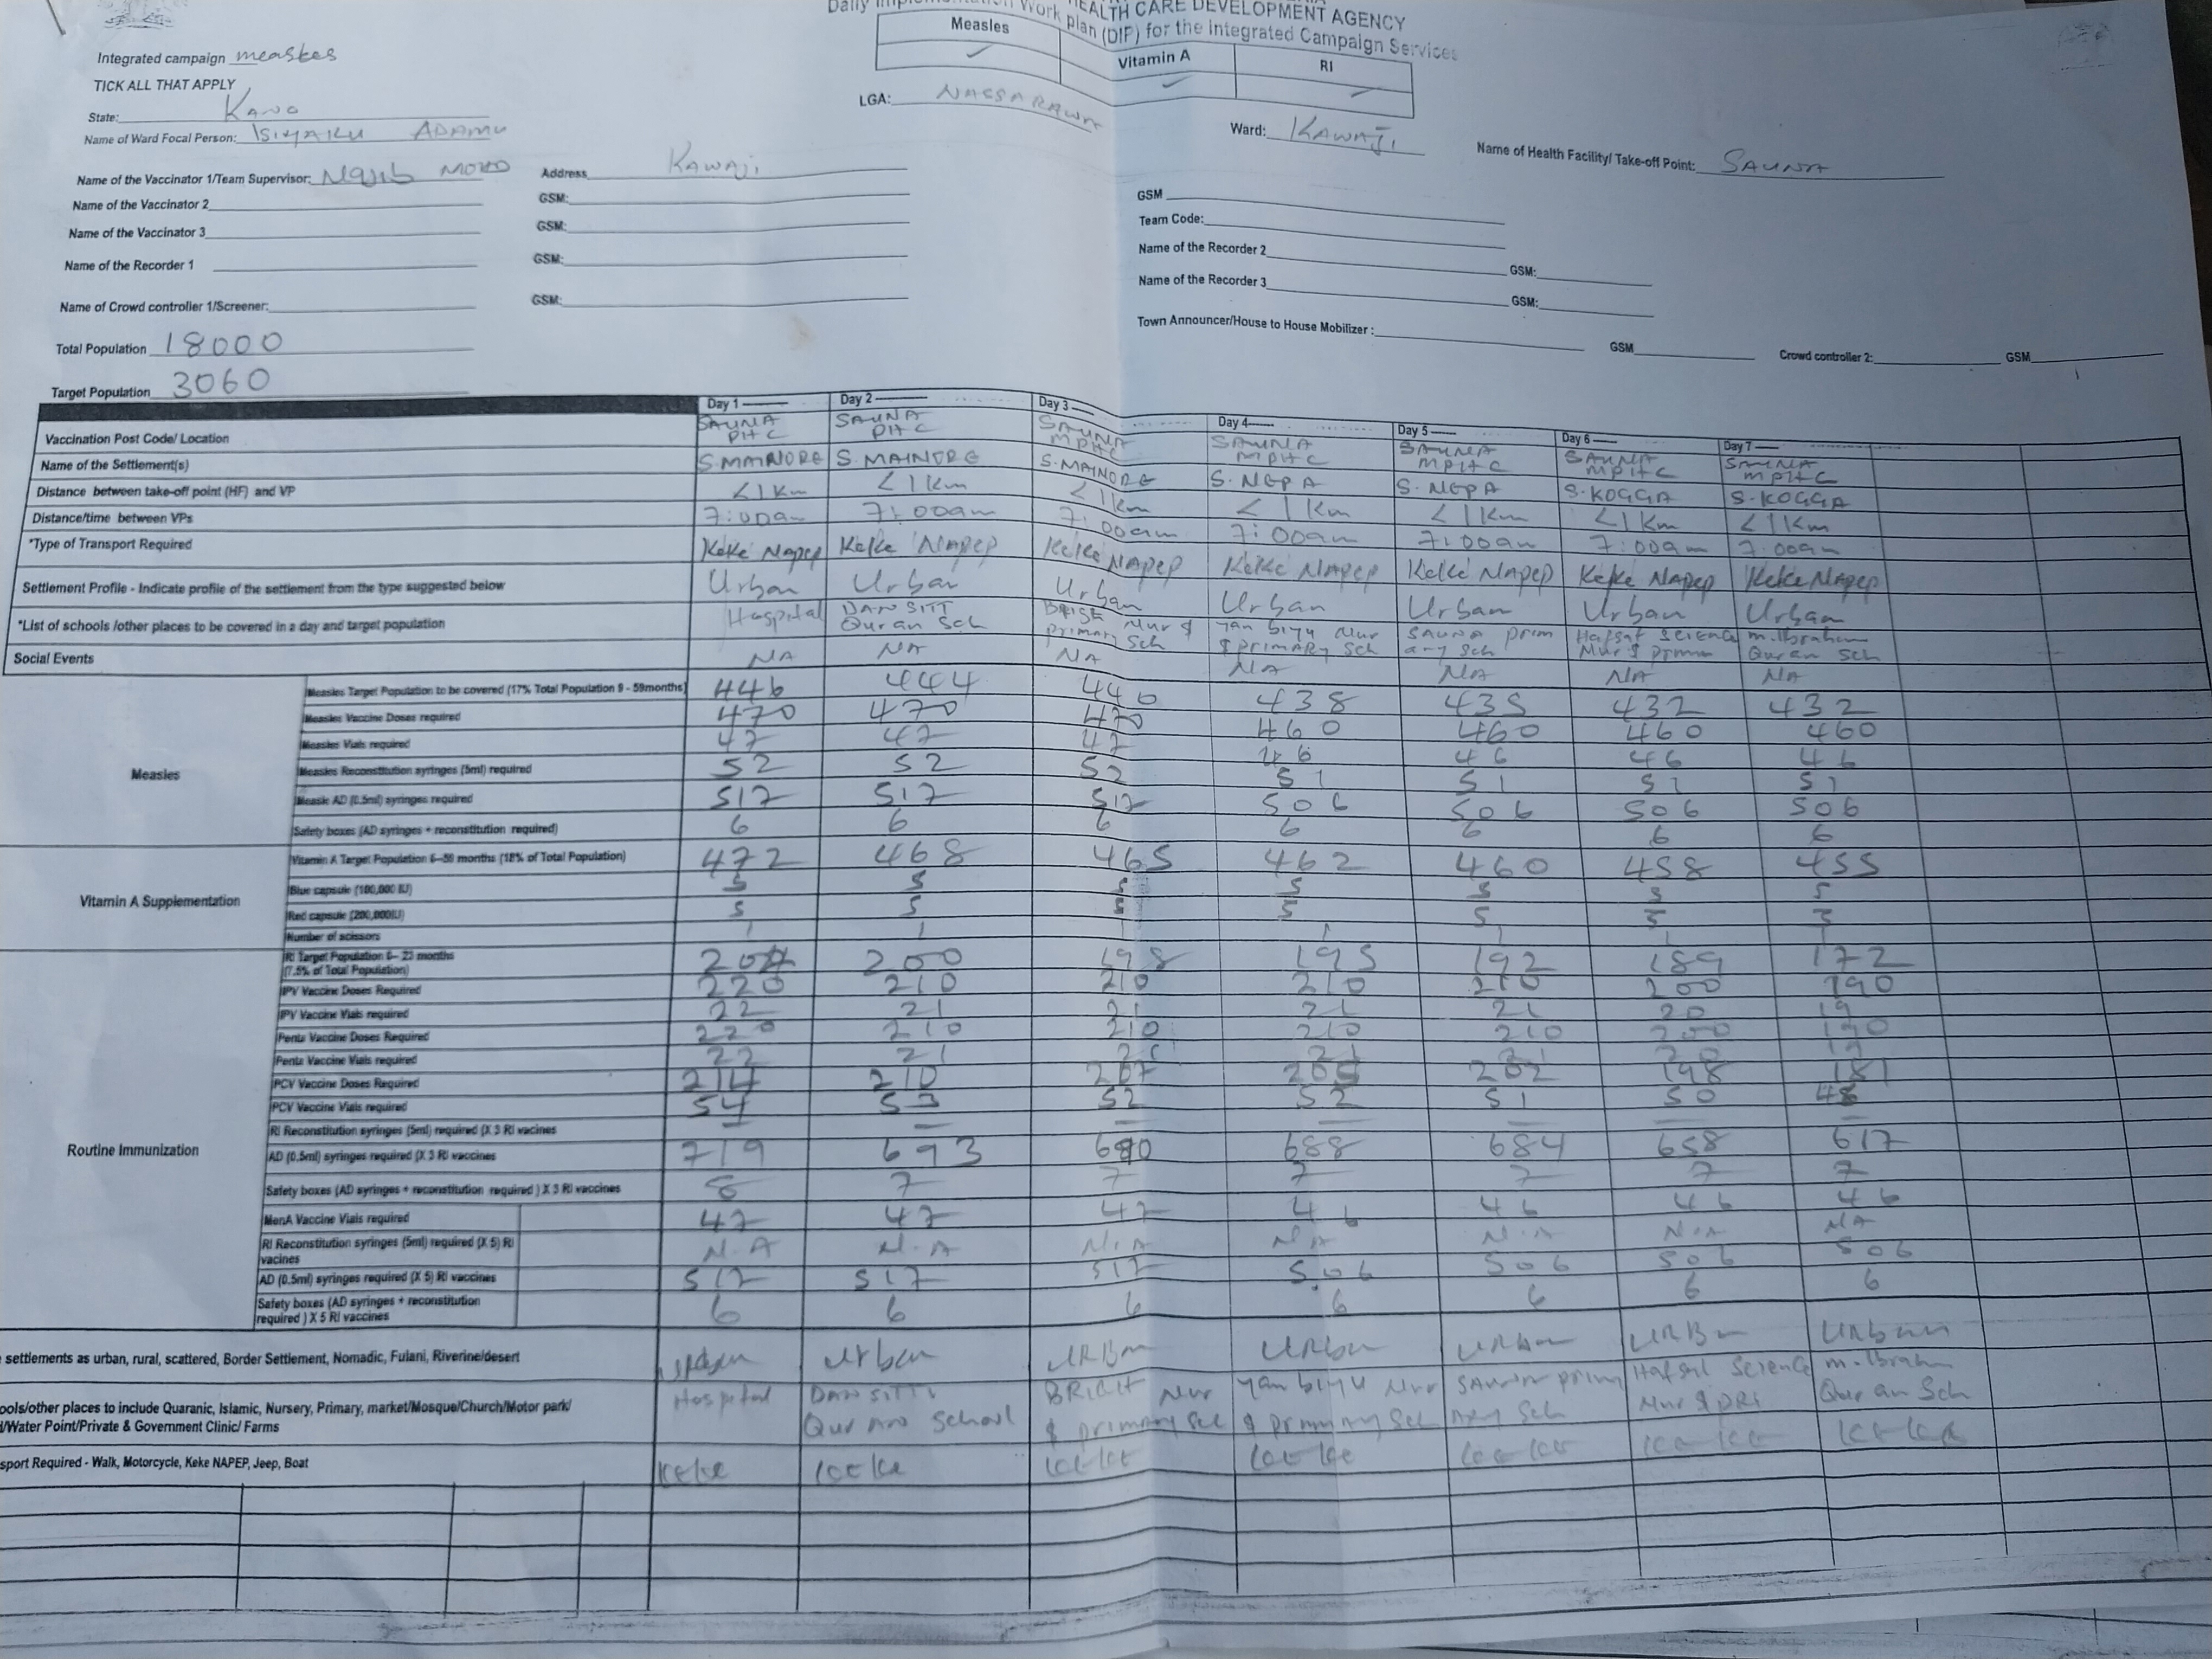 HEALTH CARE DEVELOPMENT AGENCY
Daily Implementation Work plan (DIP) for the Integrated Campaign Services
Integrated campaign measles
TICK ALL THAT APPLY
Measles Vitamin A RI
State: Kano LGA: NASSARAWA Ward: KAWAJI
Name of Ward Focal Person: ADAMU
Name of Health Facility/ Take-off Point: SAUNA
Name of the Vaccinator 1/Team Supervisor: Address Kawaji GSM
Name of the Vaccinator 2 GSM: Team Code:
Name of the Vaccinator 3 GSM: Name of the Recorder 2 GSM:
Name of the Recorder 1 GSM: Name of the Recorder 3 GSM:
Name of Crowd controller 1/Screener: GSM: Town Announcer/House to House Mobilizer : GSM Crowd controller 2: GSM
Total Population 18000
Target Population 3060
Day 1 Day 2 Day 3 Day 4 Day 5 Day 6 Day 7
Vaccination Post Code/ Location SAUNA PHC SAUNA PHC SAUNA MPHC SAUNA MPHC SAUNA MPHC SAUNA MPHC SAUNA MPHC
Name of the Settlement(s) S.MAINDRE S.MAINDRE S.MAINDRE S.NEPA S.NEPA S.KOGGA S.KOGGA
Distance between take-off point (HF) and VP <1km <1km <1km <1km <1km <1km <1km
Distance/time between VPs 7:00am 7:00am 7:00am 7:00am 7:00am 7:00am 7:00am
*Type of Transport Required Keke Napep Keke Napep Keke Napep Keke Napep Keke Napep Keke Napep Keke Napep
Settlement Profile - Indicate profile of the settlement from the type suggested below Urban Urban Urban Urban Urban Urban Urban
*List of schools /other places to be covered in a day and target population Hospital DANSITI Quran Sch Nur & primary Sch Nur & primary Sch SAUNA primary Sch Hafsat Science Nur & primary m. Ibrahim Quran Sch
Social Events NA NA NA NA NA NA NA
Measles
Measles Target Population to be covered (17% Total Population 9 - 59months) 446 444 440 438 435 432 432
Measles Vaccine Doses required 470 470 470 460 460 460 460
Measles Vials required 47 47 47 46 46 46 46
Measles Reconstitution syringes (5ml) required 52 52 52 51 51 51 51
Measle AD (0.5ml) syringes required 517 517 517 506 506 506 506
Safety boxes (AD syringes + reconstitution required) 6 6 6 6 6 6 6
Vitamin A Supplementation
Vitamin A Target Population 6–59 months (18% of Total Population) 472 468 465 462 460 458 455
Blue capsule (100,000 IU) 5 5 5 5 5 5 5
Red capsule (200,000IU) 5 5 5 5 5 5 5
Number of scissors 1 1 1 1 1 1 1
Routine Immunization
RI Target Population 6– 23 months (7.5% of Total Population) 204 200 198 195 192 189 172
IPV Vaccine Doses Required 220 210 210 210 210 200 190
IPV Vaccine Vials required 22 21 21 21 21 20 19
Penta Vaccine Doses Required 220 210 210 210 210 200 190
Penta Vaccine Vials required 22 21 21 21 20 19
PCV Vaccine Doses Required 214 210 207 202 198 181
PCV Vaccine Vials required 54 53 52 52 51 50 48
RI Reconstitution syringes (5ml) required (X 3 RI vaccines
AD (0.5ml) syringes required (X 3 RI vaccines 719 693 690 688 684 658 617
Safety boxes (AD syringes + reconstitution required ) X 3 RI vaccines 8 7 7 7 7 7 7
MenA Vaccine Vials required 47 47 47 46 46 46 46
RI Reconstitution syringes (5ml) required (X 5) RI vaccines N.A N.A N.A N.A N.A N.A NA
AD (0.5ml) syringes required (X 5) RI vaccines 517 517 517 506 506 506 506
Safety boxes (AD syringes + reconstitution required ) X 5 RI vaccines 6 6 6 6 6 6 6
settlements as urban, rural, scattered, Border Settlement, Nomadic, Fulani, Riverine/desert Urban Urban Urban Urban Urban Urban Urban
ools/other places to include Quaranic, Islamic, Nursery, Primary, market/Mosque/Church/Motor park/
/Water Point/Private & Government Clinic/ Farms Hospital DANSITI Quran School BRIGHT Nur & primary Sch Nur & primary Sch SAUNA primary Sch Hafsat Science Nur & PRI m. Ibrahim Quran Sch
sport Required - Walk, Motorcycle, Keke NAPEP, Jeep, Boat Keke Keke Keke Keke Keke Keke Keke